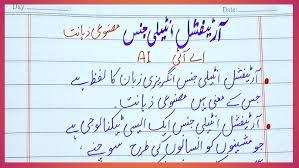 Day: Date:
آرٹیفشل انٹیلی جنس مصنوعی ذہانت
اے آئی AI
آرٹیفشل انٹیلی جنس انگریزی زبان کا لفظ ہے
جس کے معنی ہیں مصنوعی ذہانت۔
آرٹیفشل انٹیلی جنس ایک ایسی ٹیکنالوجی ہے
جو مشینوں کو انسانوں کی طرح سوچنے،